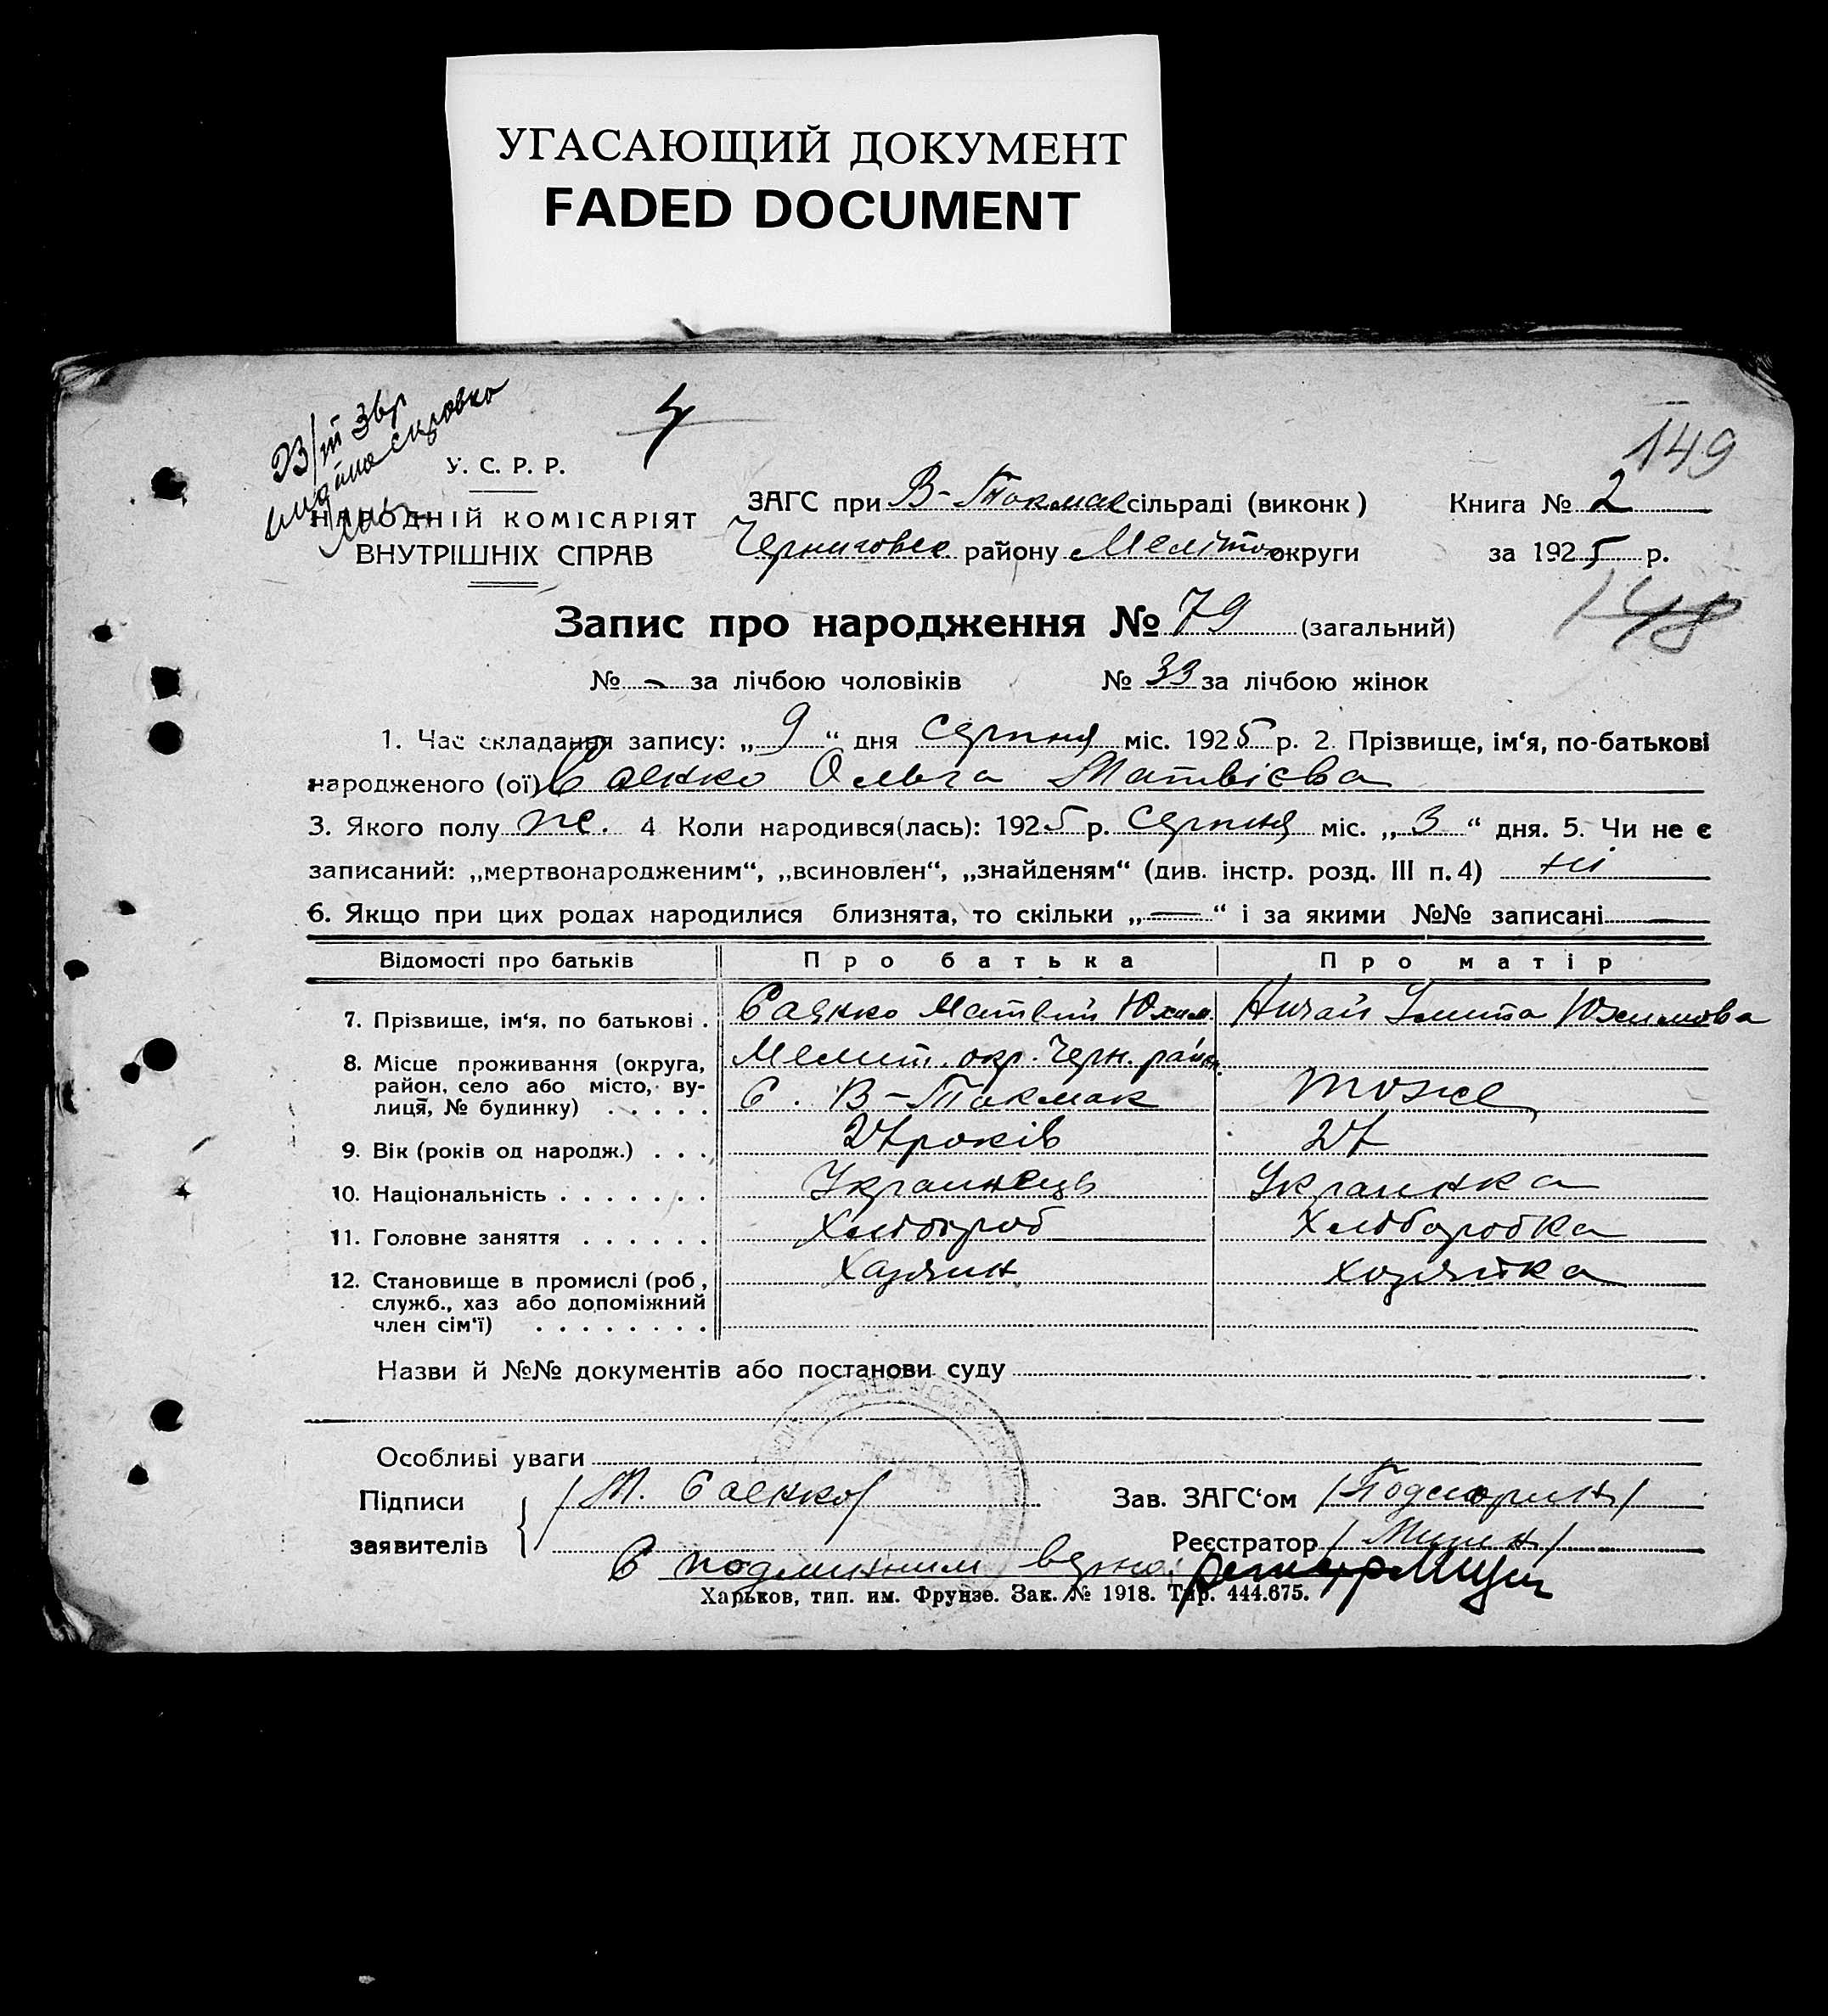 УГАСАЮЩИЙ ДОКУМЕНТ
FADED DOCUMENT
149
У. С. Р. Р.
НАРОДНІЙ КОМІСАРІЯТ
ВНУТРІШНІХ СПРАВ
ЗАГС при В-Токмак сільраді (виконк)
Книга № 2
Черниговск району Меліто округи
за 1925 р.
148
Запис про народження № 79 (загальний)
№ - за лічбою чоловіків № 33 за лічбою жінок
1. Час складання запису: „ 9 “ дня серпня міс. 1925 р. 2. Прізвище, ім‘я, по-батькові
народженого (ої) Саенко Ольга Матвієва
3. Якого полу же. 4 Коли народився(лась): 1925 р. серпня міс. „ 3 “ дня. 5. Чи не є
записаний: „мертвонародженим“, „всиновлен“, „знайденям“ (див. інстр. розд. III п. 4) ні
6. Якщо при цих родах народилися близнята, то скільки „ — “ і за якими №№ записані —
Відомості про батьків Про батька Про матір
7. Прізвище, ім‘я, по батькові . Саенко Матвій Юхим. Ничай Улита Юхимова
8. Місце проживання (округа, Мелит. окр. Черн. район.
район, село або місто, ву- С. В-Токмак тоже
лиця, № будинку) . . . . .
9. Вік (років од народж.) . . . 27 років 27
10. Національність . . . . . . . Украинець Украинка
11. Головне заняття . . . . . . Хлібороб Хліборобка
12. Становище в промислі (роб, Хазяин хозяйка
служб., хаз або допоміжний
член сім‘ї) . . . . . . . .
Назви й №№ документів або постанови суду
Особливі уваги
Підписи /М. Саенко/ Зав. ЗАГС‘ом /Подскорин/
заявителів Реєстратор
С подлинним верно:
Харьков, тип. им. Фрунзе. Зак. № 1918. Тир. 444.675.